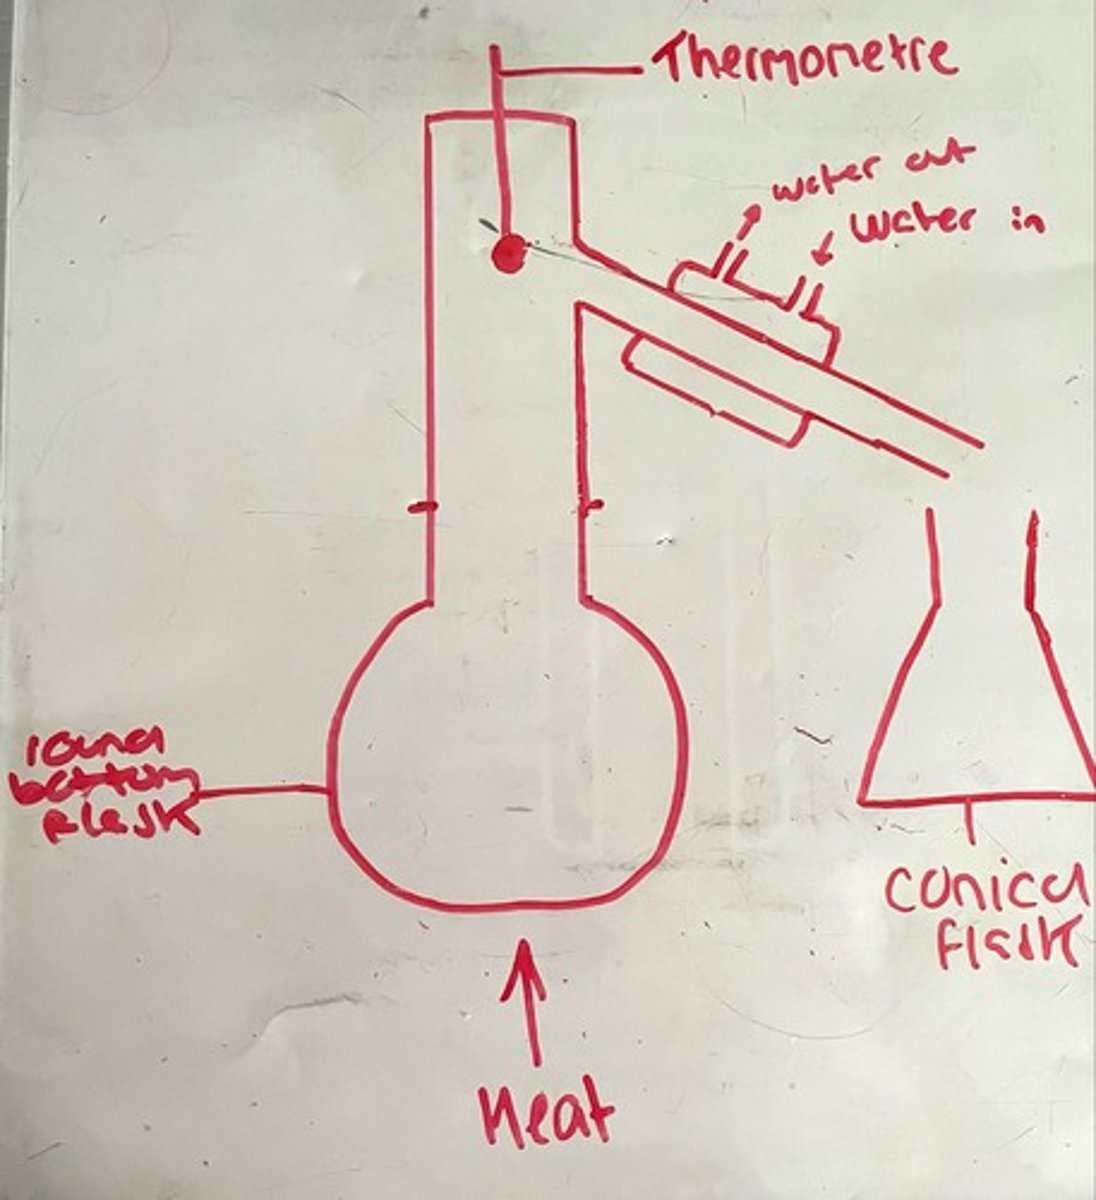 Thermometre
water out
water in
round
bottom
flask
conical
flask
Heat